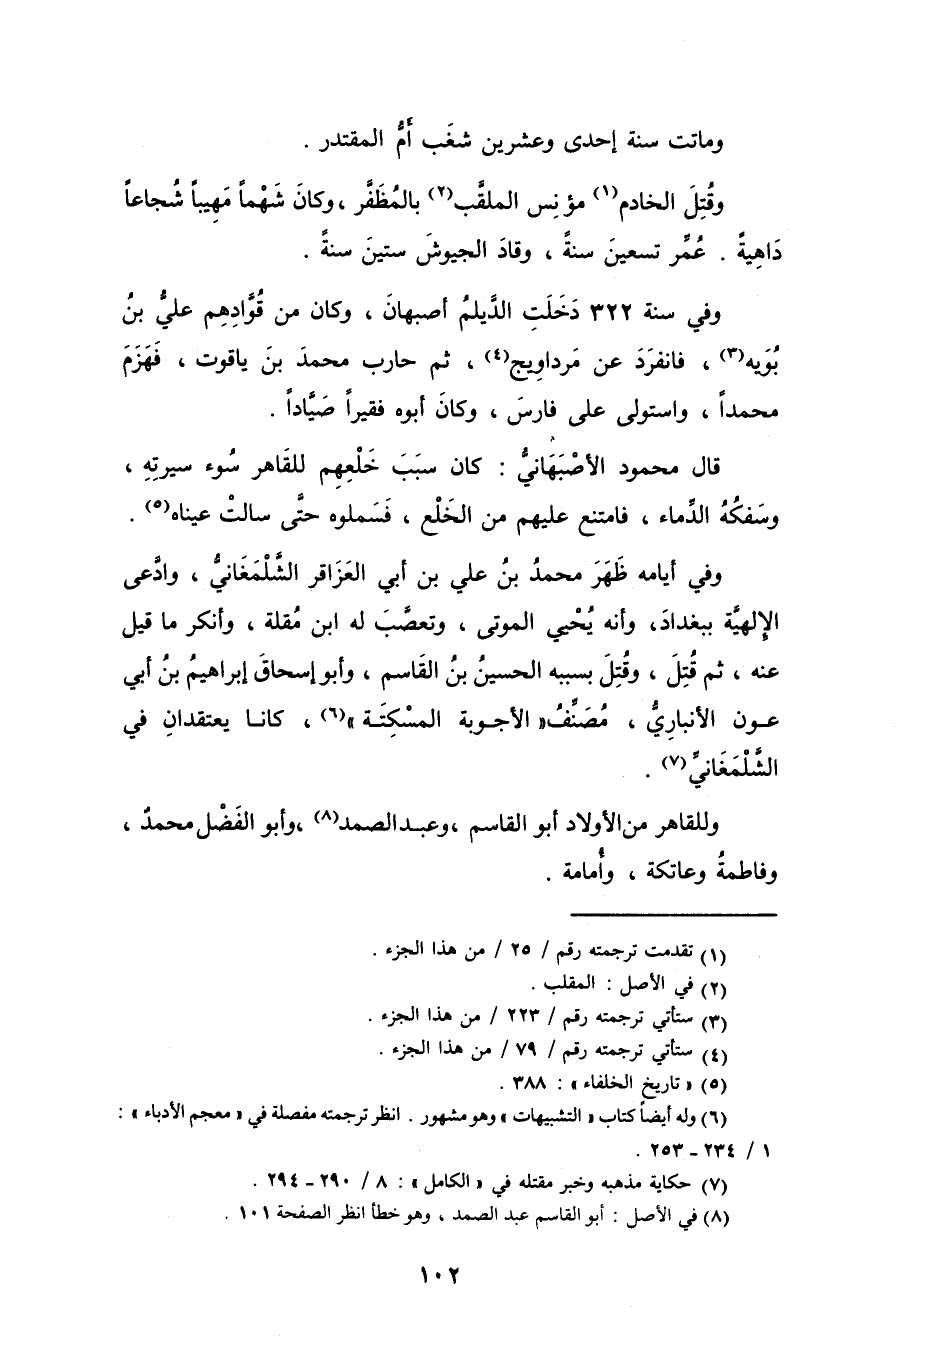 وماتت سنة إحدى وعشرين شغَب أُمُّ المقتدر .
وقُتِلَ الخادم(١) مؤنِس الملقَّب(٢) بالمُظَفَّر ، وكانَ شَهْماً مَهِيباً شُجاعاً
دَاهِيةً . عُمِّر تسعينَ سنةً ، وقادَ الجيوشَ ستينَ سنةً .
وفي سنة ٣٢٢ دَخَلَتِ الدَّيلمُ أصبهانَ ، وكان من قُوَّادِهِم عليُّ بنُ
بُوَيه(٣) ، فانفرَدَ عن مَرداوِيج(٤) ، ثم حارب محمدَ بنَ ياقوت ، فَهَزَمَ
محمداً ، واستولى على فارسَ ، وكانَ أبوه فقيراً صَيَّاداً .
قال محمود الأصْبَهَانيُّ : كان سبَبَ خَلْعِهِم للقَاهر سُوء سيرتِهِ ،
وسَفكُهُ الدِّماء ، فامتنع عليهم من الخَلْع ، فَسَملوه حتَّى سالتْ عيناه(٥) .
وفي أيامه ظَهَرَ محمدُ بنُ علي بن أبي العَزَاقر الشَّلْمَغَانيُّ ، وادَّعى
الإِلهيَّة ببغدادَ، وأنه يُحْيي الموتى ، وتعصَّبَ له ابن مُقلة ، وأنكر ما قيل
عنه ، ثم قُتِلَ ، وقُتِلَ بسببه الحسينُ بنُ القَاسم ، وأبو إسحاقَ إبراهيمُ بنُ أبي
عون الأنباريُّ ، مُصَنِّفُ « الأجوبة المسْكِتَة »(٦) ، كانا يعتقدانِ في
الشَّلْمَغَانيِّ(٧) .
وللقاهر من الأولاد أبو القاسم ، وعبد الصمد(٨) ، وأبو الفَضْل محمدٌ ،
وفاطمةُ وعاتكة ، وأُمامة .
(١) تقدمت ترجمته رقم / ٢٥ / من هذا الجزء .
(٢) في الأصل : المقلب .
(٣) ستأتي ترجمته رقم / ٢٢٣ / من هذا الجزء .
(٤) ستأتي ترجمته رقم / ٧٩ / من هذا الجزء .
(٥) « تاريخ الخلفاء » : ٣٨٨ .
(٦) وله أيضاً كتاب « التشبيهات » وهو مشهور . انظر ترجمته مفصلة في « معجم الأدباء » :
١ / ٢٣٤ - ٢٥٣ .
(٧) حكاية مذهبه وخبر مقتله في « الكامل » : ٨ / ٢٩٠ - ٢٩٤ .
(٨) في الأصل : أبو القاسم عبد الصمد ، وهو خطأ انظر الصفحة ١٠١ .
١٠٢